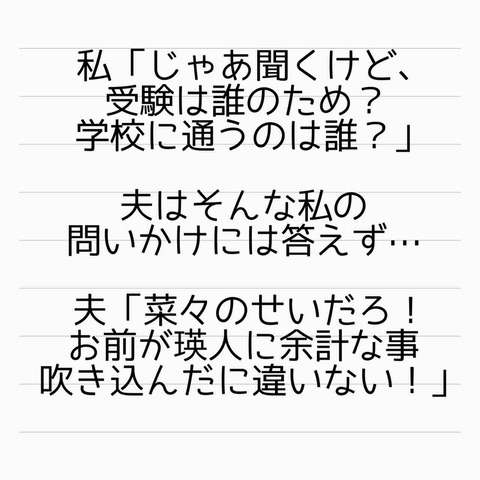 私「じゃあ聞くけど、
受験は誰のため？
学校に通うのは誰？」
夫はそんな私の
問いかけには答えず…
夫「菜々のせいだろ！
お前が瑛人に余計な事
吹き込んだに違いない！」